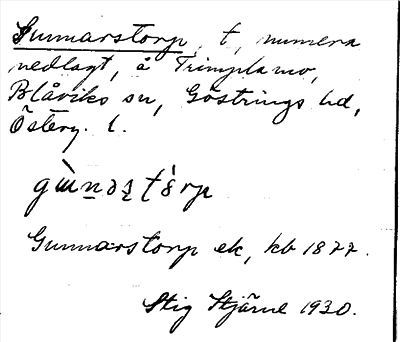 Gunnarstorp, t, numera
nedlagt, å Trimpla mo,
Blåviks sn, Göstrings hd,
Österg. l.
Gunnarstorp ek, kb 1877.
Stig Stjärne 1930.